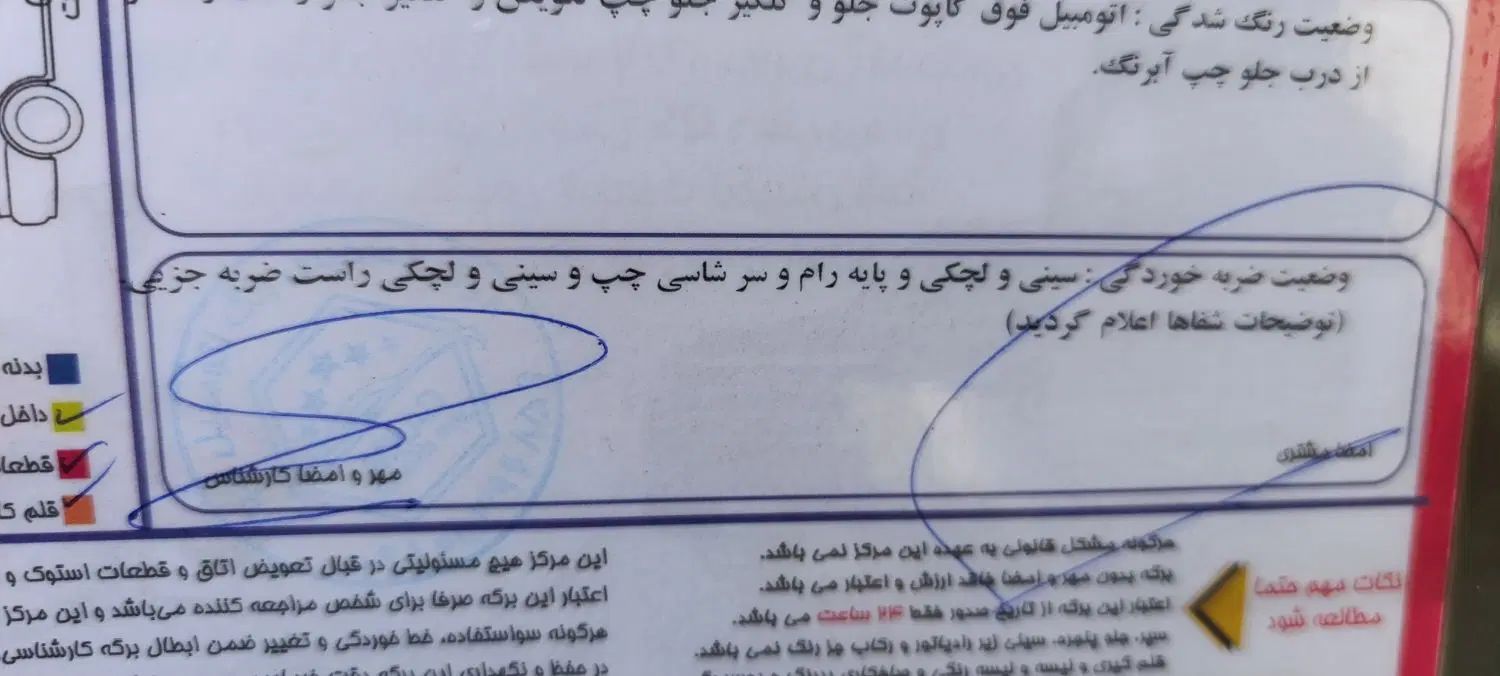 وضعیت رنگ شدگی : اتومبیل فوق کاپوت جلو و گلگیر جلو چپ تعویض و
از درب جلو چپ آبرنگ.
وضعیت ضربه خوردگی : سینی و لچکی و پایه رام و سر شاسی چپ و سینی و لچکی راست ضربه جزیی.
(توضیحات شفاها اعلام گردید)
امضا مشتری
مهر و امضا کارشناس
بدنه
داخل
قطعا
قلم کا
نکات مهم حتما
مطالعه شود
هرگونه مشکل قانونی به عهده این مرکز نمی باشد.
برگه بدون مهر و امضا فاقد ارزش و اعتبار می باشد.
اعتبار این برگه از تاریخ صدور فقط ۲۴ ساعت می باشد.
سپر، جلو پنجره، سینی زیر رادیاتور و رکاب جز رنگ نمی باشد.
قلم گیری و لیسه و لیسه رنگی و صافکاری بیرنگ و
این مرکز هیچ مسئولیتی در قبال تعویض اتاق و قطعات استوک و
اعتبار این برگه صرفا برای شخص مراجعه کننده می‌باشد و این مرکز
هرگونه سواستفاده، خط خوردگی و تغییر ضمن ابطال برگه کارشناسی
در حفظ و نگهداری این برگه دقت